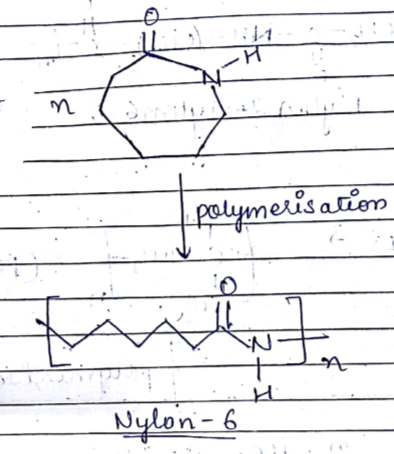 O
H
N
n
polymerisation
O
N
n
H
Nylon-6